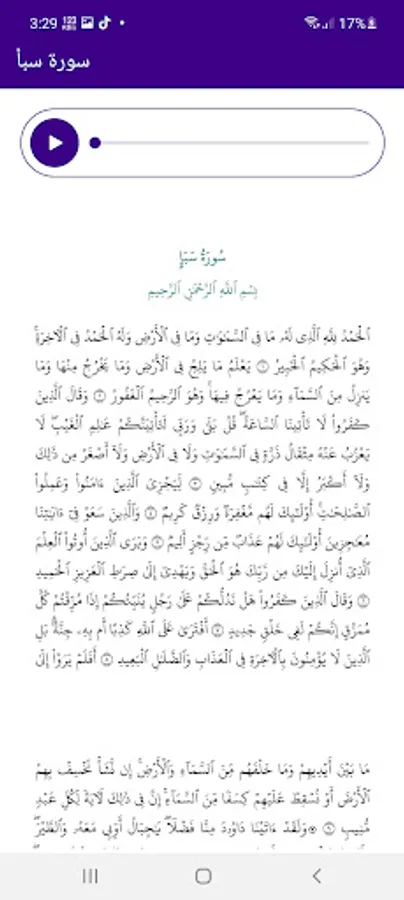 3:29 17%
سورة سبأ
سُورَةُ سَبَإٍ
بِسْمِ ٱللَّهِ ٱلرَّحْمَٰنِ ٱلرَّحِيمِ
ٱلْحَمْدُ لِلَّهِ ٱلَّذِى لَهُۥ مَا فِى ٱلسَّمَٰوَٰتِ وَمَا فِى ٱلْأَرْضِ وَلَهُ ٱلْحَمْدُ فِى ٱلْءَاخِرَةِۚ
وَهُوَ ٱلْحَكِيمُ ٱلْخَبِيرُ ۝ يَعْلَمُ مَا يَلِجُ فِى ٱلْأَرْضِ وَمَا يَخْرُجُ مِنْهَا وَمَا
يَنزِلُ مِنَ ٱلسَّمَآءِ وَمَا يَعْرُجُ فِيهَاۚ وَهُوَ ٱلرَّحِيمُ ٱلْغَفُورُ ۝ وَقَالَ ٱلَّذِينَ
كَفَرُوا۟ لَا تَأْتِينَا ٱلسَّاعَةُۖ قُلْ بَلَىٰ وَرَبِّى لَتَأْتِيَنَّكُمْ عَٰلِمِ ٱلْغَيْبِۖ لَا
يَعْزُبُ عَنْهُ مِثْقَالُ ذَرَّةٍ فِى ٱلسَّمَٰوَٰتِ وَلَا فِى ٱلْأَرْضِ وَلَآ أَصْغَرُ مِن ذَٰلِكَ
وَلَآ أَكْبَرُ إِلَّا فِى كِتَٰبٍ مُّبِينٍ ۝ لِّيَجْزِىَ ٱلَّذِينَ ءَامَنُوا۟ وَعَمِلُوا۟
ٱلصَّٰلِحَٰتِۚ أُو۟لَٰٓئِكَ لَهُم مَّغْفِرَةٌ وَرِزْقٌ كَرِيمٌ ۝ وَٱلَّذِينَ سَعَوْ فِىٓ ءَايَٰتِنَا
مُعَٰجِزِينَ أُو۟لَٰٓئِكَ لَهُمْ عَذَابٌ مِّن رِّجْزٍ أَلِيمٌ ۝ وَيَرَى ٱلَّذِينَ أُوتُوا۟ ٱلْعِلْمَ
ٱلَّذِىٓ أُنزِلَ إِلَيْكَ مِن رَّبِّكَ هُوَ ٱلْحَقَّ وَيَهْدِىٓ إِلَىٰ صِرَٰطِ ٱلْعَزِيزِ ٱلْحَمِيدِ
۝ وَقَالَ ٱلَّذِينَ كَفَرُوا۟ هَلْ نَدُلُّكُمْ عَلَىٰ رَجُلٍ يُنَبِّئُكُمْ إِذَا مُزِّقْتُمْ كُلَّ
مُمَزَّقٍ إِنَّكُمْ لَفِى خَلْقٍ جَدِيدٍ ۝ أَفْتَرَىٰ عَلَى ٱللَّهِ كَذِبًا أَم بِهِۦ جِنَّةٌۢۗ بَلِ
ٱلَّذِينَ لَا يُؤْمِنُونَ بِٱلْءَاخِرَةِ فِى ٱلْعَذَابِ وَٱلضَّلَٰلِ ٱلْبَعِيدِ ۝ أَفَلَمْ يَرَوْا۟ إِلَىٰ
مَا بَيْنَ أَيْدِيهِمْ وَمَا خَلْفَهُم مِّنَ ٱلسَّمَآءِ وَٱلْأَرْضِۚ إِن نَّشَأْ نَخْسِفْ بِهِمُ
ٱلْأَرْضَ أَوْ نُسْقِطْ عَلَيْهِمْ كِسَفًا مِّنَ ٱلسَّمَآءِۚ إِنَّ فِى ذَٰلِكَ لَءَايَةً لِّكُلِّ عَبْدٍ
مُّنِيبٍ ۝ ۞ وَلَقَدْ ءَاتَيْنَا دَاوُۥدَ مِنَّا فَضْلًاۖ يَٰجِبَالُ أَوِّبِى مَعَهُۥ وَٱلطَّيْرَۖ